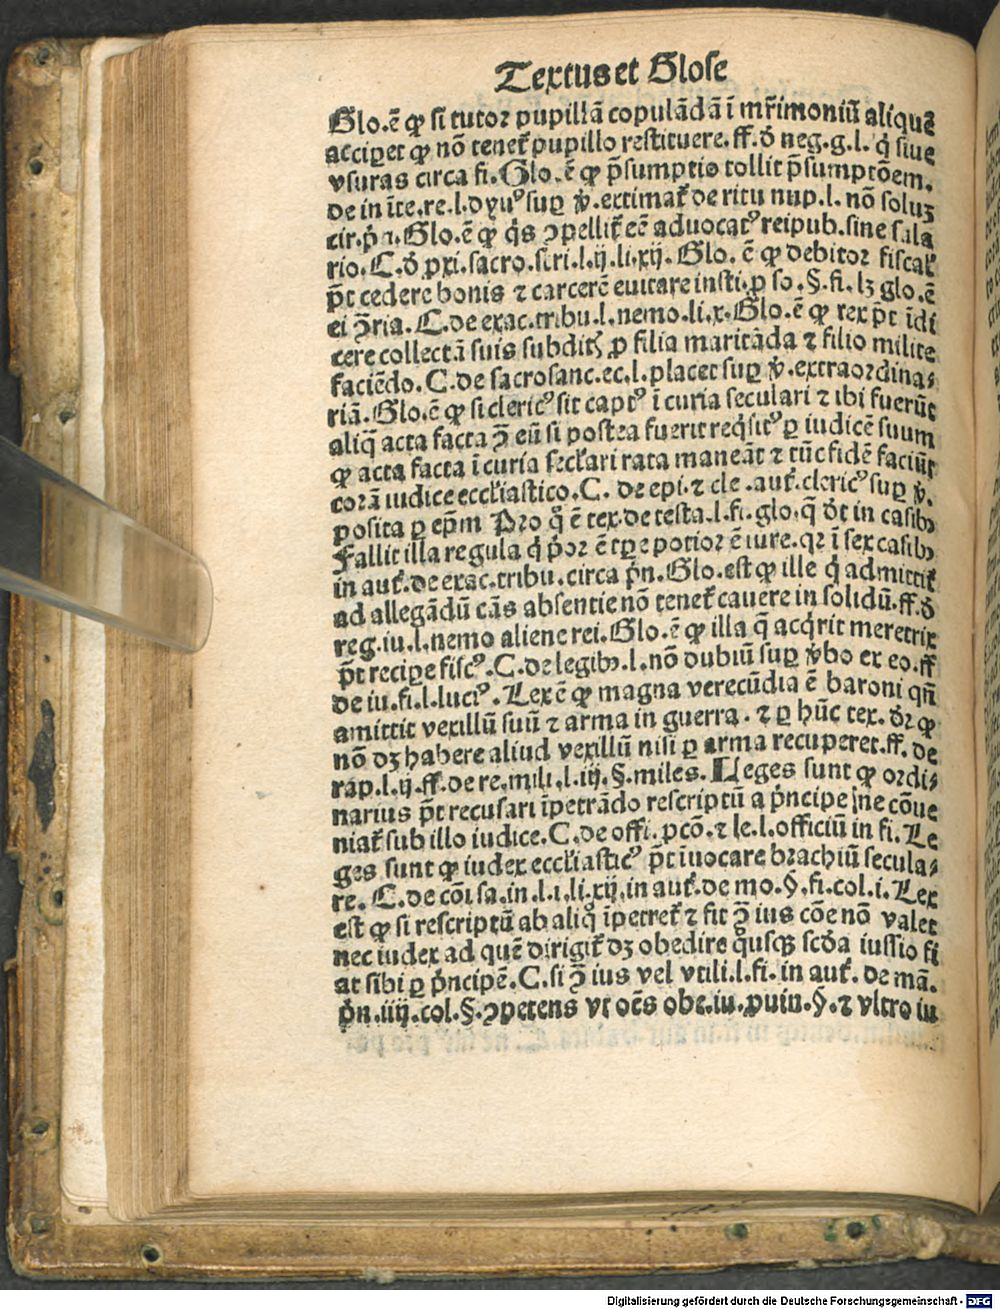 Textus et Glose
Glo.ē ꝙ si tutor pupillā copulādā ī mr̄imoniū aliquē
accipet ꝙ nō tenet̄ pupillo restituere.ff.ð neg.g.l. q̇ siue
vsuras circa fi.Glo.ē ꝙ p̄sumptio tollit p̄sumptōem.
de in īte.re.l.dyuꝰ suꝑ v̇.extimat̄ de ritu nup.l. nō soluꝫ
cir.pn̄.Glo.ē ꝙ qs ↄpellit̄ eē aduocatꝰ reipub.sine sala
rio.C.ð ꝓxi.sacro.scri.l.ij.li.xij. Glo. ē ꝙ debitor fiscal̄
p̄t cedere bonis ⁊ carcerē euitare insti.ꝑ so.§.fi.lꝫ glo.ē
ei ↄ̄ria. C.de exac.tribu.l.nemo.li.x.Glo.ē ꝙ rex p̄t īdi
cere collectā suis subditꝭ ꝓ filia maritāda ⁊ filio milite
faciēdo.C.de sacrosanc.ec.l.placet suꝑ v̇.extraordina⸗
riā.Glo.ē ꝙ si clericꝰ sit captꝰ ī curia seculari ⁊ ibi fuerūt
aliq̄ acta facta ↄ̄ eū si postea fuerit reqsitꝰ ꝑ iudicē suum
ꝙ acta facta ī curia secl̄ari rata maneāt ⁊ tūc fidē faciūt
corā iudice eccl̄iastico.C. de epi.⁊ cle .aut̄.clericꝰ suꝑ v̇.
posita ꝑ ep̄m Pro qͦ ē tex.de testa.l.fi.glo.q̄ ðt in casibꝫ
Fallit illa regula q̇ pͥor ē tꝑe potior ē iure.qꝛ ī sex casibꝫ
in aut̄.de exac.tribu.circa pn̄.Glo.est ꝙ ille q̇ admittit̄
ad allegādū cās absentie nō tenet̄ cauere in solidū.ff.ð
reg.iu.l.nemo aliene rei.Glo.ē ꝙ illa q̄ acqrit meretrix
p̄t reciꝑe fiscꝰ.C.de legibꝫ.l.nō dubiū suꝑ v̇bo ex eo.ff
de iu.fi.l.luciꝰ. Lex ē ꝙ magna verecūdia ē baroni qn̄
amittit vexillū suū ⁊ arma in guerra.⁊ ꝑ hūc tex. ðꝛ ꝙ
nō dꝫ habere aliud vexillū nisi ꝑ arma recuperet.ff. de
rap.l.ij.ff.de re.mili.l.iij.§.miles. Leges sunt ꝙ ordi⸗
narius p̄t recusari īpetrādo rescriptū a pͥncipe ne cōue
niat̄ sub illo iudice.C.de offi.pcō.⁊ le.l.officiū in fi.Le
ges sunt ꝙ iudex eccl̄iasticꝰ p̄t īuocare brachiū secula⸗
re. C.de cōi sa.in.l.i.li.xij.in aut̄.de mo.§.fi.col.i.Lex
est ꝙ si rescriptū ab aliqͦ īpetret̄ ⁊ fit ↄ̄ ius cōe nō valet
nec iudex ad quē dirigit̄ dꝫ obedire qͦusqꝫ scða iussio fi
at sibi ꝑ pͥncipē.C.si ↄ̄ ius vel vtili.l.fi. in aut̄. de mā.
pͥn.iiij.col.§.ↄpetens vt oēs obe.iu.ꝓuin.§.⁊ vltro iu
Digitalisierung gefördert durch die Deutsche Forschungsgemeinschaft - DFG